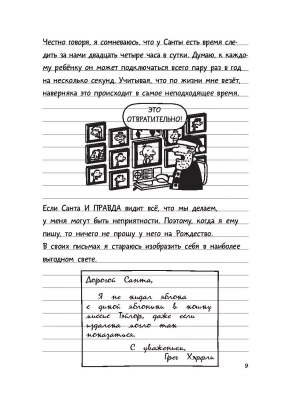 Честно говоря, я сомневаюсь, что у Санты есть время сле-
дить за нами двадцать четыре часа в сутки. Думаю, к каж-
дому ребёнку он может подключаться всего пару раз в год
на несколько секунд. Учитывая, что по жизни мне везёт,
наверняка это происходит в самое неподходящее время.
ЭТО
ОТВРАТИТЕЛЬНО!
Если Санта И ПРАВДА видит всё, что мы делаем,
у меня могут быть неприятности. Поэтому, когда я ему
пишу, то ничего не прошу у него на Рождество.
В своих письмах я стараюсь изобразить себя в наиболее
выгодном свете.
Дорогой Санта,
Я не кидал яблока
с дикой яблоньки в кошку
миссис Тэйлор, даже если
издалека могло так
показаться.
С уважением,
Грег Хэффли
9